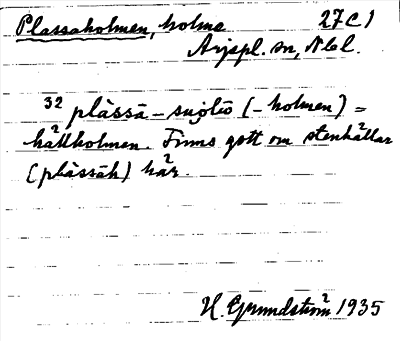 Plassaholmen, holme 27C1
Arjepl. sn, Nbl.
32 plàssā – suọlō (– holmen) =
hällholmen. Finns gott om stenhällar
(plàssāh) här.
H. Grundström 1935